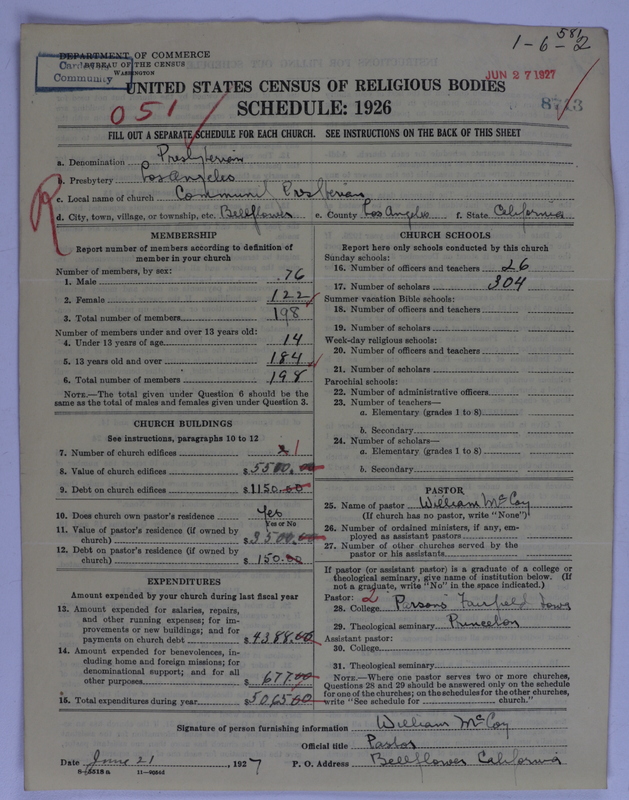 1-6-581/2
DEPARTMENT OF COMMERCE
BUREAU OF THE CENSUS
WASHINGTON
Community
JUN 27 1927
UNITED STATES CENSUS OF RELIGIOUS BODIES
051
SCHEDULE: 1926
8713
FILL OUT A SEPARATE SCHEDULE FOR EACH CHURCH. SEE INSTRUCTIONS ON THE BACK OF THIS SHEET
R
a. Denomination Presbyterian
b. Presbytery Los Angeles
c. Local name of church Community Presbyterian
d. City, town, village, or township, etc. Bellflower e. County Los Angeles f. State California
MEMBERSHIP
Report number of members according to definition of
member in your church
Number of members, by sex:
1. Male 76
2. Female 122
3. Total number of members 198
Number of members under and over 13 years old:
4. Under 13 years of age 14
5. 13 years old and over 184
6. Total number of members 198
NOTE.—The total given under Question 6 should be the
same as the total of males and females given under Question 3.
CHURCH BUILDINGS
See instructions, paragraphs 10 to 12
7. Number of church edifices 1
8. Value of church edifices $5500.00
9. Debt on church edifices $1150.00
10. Does church own pastor's residence Yes
Yes or No
11. Value of pastor's residence (if owned by
church) $3500.00
12. Debt on pastor's residence (if owned by
church) $150.00
EXPENDITURES
Amount expended by your church during last fiscal year
13. Amount expended for salaries, repairs,
and other running expenses; for im-
provements or new buildings; and for
payments on church debt $4388.00
14. Amount expended for benevolences, in-
cluding home and foreign missions; for
denominational support; and for all
other purposes $677.00
15. Total expenditures during year $5065.00
CHURCH SCHOOLS
Report here only schools conducted by this church
Sunday schools:
16. Number of officers and teachers 26
17. Number of scholars 304
Summer vacation Bible schools:
18. Number of officers and teachers
19. Number of scholars
Week-day religious schools:
20. Number of officers and teachers
21. Number of scholars
Parochial schools:
22. Number of administrative officers
23. Number of teachers—
a. Elementary (grades 1 to 8)
b. Secondary
24. Number of scholars—
a. Elementary (grades 1 to 8)
b. Secondary
PASTOR
25. Name of pastor William McCoy
(If church has no pastor, write "None")
26. Number of ordained ministers, if any, em-
ployed as assistant pastors
27. Number of other churches served by the
pastor or his assistants
If pastor (or assistant pastor) is a graduate of a college or
theological seminary, give name of institution below. (If
not a graduate, write "No" in the space indicated.)
Pastor: 2
28. College Parsons Fairfield Iowa
29. Theological seminary Princeton
Assistant pastor:
30. College
31. Theological seminary
NOTE.—Where one pastor serves two or more churches,
Questions 28 and 29 should be answered only on the schedule
for one of the churches; on the schedules for the other churches,
write "See schedule for church."
Signature of person furnishing information William McCoy
Official title Pastor
Date June 21, 1927 P. O. Address Bellflower California
8-5518a 11-9054d